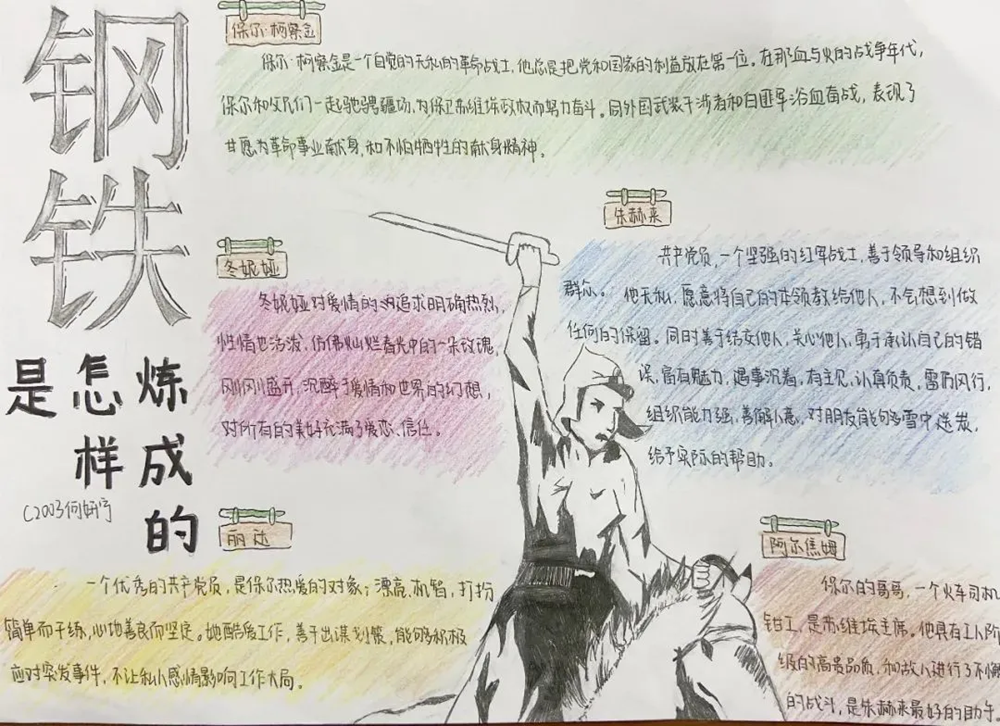 钢铁
是怎样
炼成的
C2003何妍宁
保尔·柯察金
保尔·柯察金是一个自觉的无私的革命战士,他总是把党和国家的利益放在第一位。在那血与火的战争年代,
保尔和父兄们一起驰骋疆场,为保卫苏维埃政权而努力奋斗。同外国武装干涉者和白匪军浴血奋战,表现了
甘愿为革命事业献身,和不怕牺牲的献身精神。
朱赫来
共产党员,一个坚强的红军战士,善于领导和组织
群众。他无私,愿意将自己的本领教给他人,不会想到做
任何的保留。同时善于结交他人,关心他人,勇于承认自己的错
误,富有魅力,遇事沉着,有主见,认真负责,雷厉风行,
组织能力强,善解人意,对朋友能够雪中送炭,
给予实际的帮助。
冬妮娅
冬妮娅对爱情的追求明确热烈,
性情也活泼,仿佛灿烂春光中的一朵玫瑰,
刚刚盛开,沉醉于爱情和世界的幻想,
对所有的美好充满了爱恋、信任。
丽达
一个优秀的共产党员,是保尔热爱的对象;漂亮、机智,打扮
简单而干练,心地善良而坚定。她酷爱工作,善于出谋划策,能够积极
应对突发事件,不让私人感情影响工作大局。
阿尔焦姆
保尔的哥哥,一个火车司机
钳工,是苏维埃主席。他具有工人阶
级的高贵品质,和敌人进行了不懈
的战斗,是朱赫来最好的助手